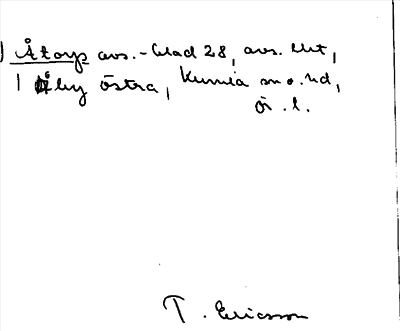 Åtorp avs.-blad 28, avs. Utt,
Åby östra, Kumla sn o. hd,
Ö. l.
T. Ericsson